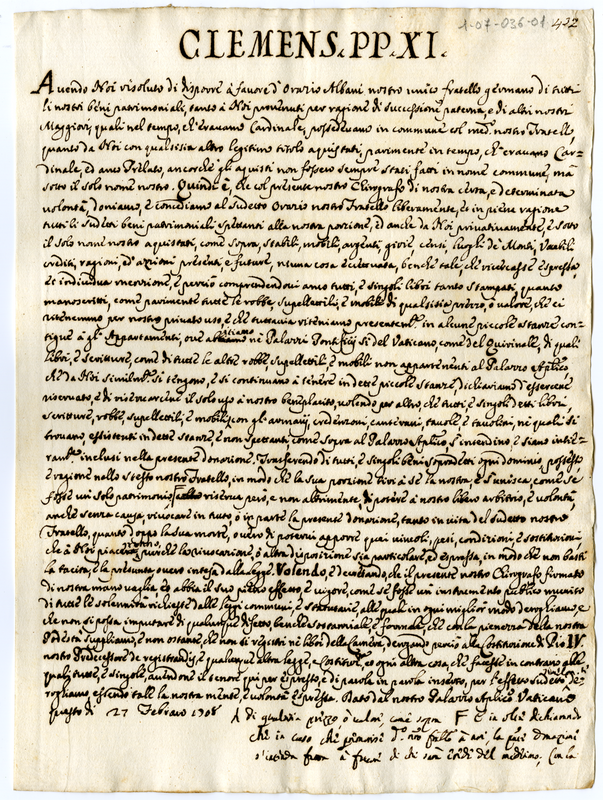 1-07-036-01 422
CLEMENS. PP. XI.
Avendo Noi risoluto di disporre à favore d'Orazio Albani nostro unico fratello germano di tutti
li nostri beni patrimoniali, tanto à Noi provenuti per ragione di successione paterna, e di altri nostri
Maggiori, quali nel tempo, ch'eravamo Cardinale, possedevamo in commune col med.º nostro Fratello,
quanto da Noi con qualsisia altro legitimo titolo aquistati, parimente in tempo, ch'eravamo Car-
dinale, ed anco Prelato, ancorche gli aquisti non fossero sempre stati fatti in nome commune, mà
sotto il solo nome nostro. Quindi è, che col presente nostro Chirografo di nostra certa, e determinata
volontà, doniamo, e concediamo al sudetto Orazio nostro Fratello liberamente, et in piena ragione
tutti li sudetti beni patrimoniali spettanti alla nostra porzione, ed anche da Noi privativamente, e sotto
il solo nome nostro aquistati, come sopra, stabili, mobili, argenti, gioie, censi, luoghi de Monti, Vacabili
crediti, ragioni, ed azzioni presenti, e future, niuna cosa eccettuata, benche tale, che ricercasse espressa,
et individua menzione, e perciò comprendendovi anco tutti, e singoli libri tanto stampati, quanto
manoscritti, come parimente tutte le robbe, supellettili, e mobili di qualsisia prezzo, o valore, che ci
ritenemmo per nostro privato uso, e che tuttavia riteniamo presentem.te in alcune piccole stanze con-
tigue à gl'Appartamenti, ove abitiamo nè Palazzi Pontificij sì del Vaticano, come del Quirinale, di quali
libri, e scritture, come di tutte le altre robbe, supellettili, e mobili non appartenenti al Palazzo Aplico
che da Noi similm.te si tengono, e si continuano à tenere in dette piccole stanze, dichiariamo d'essercene
riservato, e di riservarcene il solo uso à nostro beneplacito, volendo per altro, che tutti, e singoli detti libri,
scritture, robbe, supellettili, e mobili, con gl'armarij, credenzoni, canterani, tavole, e tavolini, ne quali si
trovano, esistenti in dette stanze, e non spettanti, come sopra al Palazzo Aplico, s'intendino, e siano intie-
ram.te inclusi nella presente donazione. Trasferendo di tutti, e singoli beni sopradetti ogni dominio, possesso,
e ragione nello stesso nostro Fratello, in modo che la sua porzione fin'ora sè la nostra, e s'unisca, come se
fosse un solo patrimonio riserva però, e non altrimente, di potere à nostro libero arbitrio, e volontà,
anche senza causa, rivocare in tutto, ò in parte la presente donazione, tanto in vita del sudetto nostro
Fratello, quanto doppo la sua morte, o vero di potervi apporre quei vincoli, pesi, condizioni, e sostituzioni
che à Noi piacerà, purche la rivocazione, ò altra disposizione sia particolare, ed espressa, in modo che non basti
la tacita, e la presunta overo intesa dalla legge. Volendo, e decretando, che il presente nostro Chirografo firmato
di nostra mano vaglia, et abbia il suo pieno effetto, e vigore, come se fosse un instrumento publico munito
di tutte le solennità richieste dalle leggi communi, e statutarie, alle quali in ogni miglior modo deroghiamo, e
che non si possa imputare di qualunque difetto benche sostanziale, e formale, che con la pienezza della nostra
Podestà suppliamo, e non ostante, che non si registri nè libri della Camera, derogando perciò alla Costituzione di Pio IV.
nostro Predecessore de registrandis, e qualunque altra legge, e Costituz.e, et ogni altra cosa, che facesse in contrario alle
quali tutte, e singole, avendone il tenore qui per espresso, e di parola in parola inserto, per l'effetto sudetto de-
roghiamo, essendo tale la nostra mente, e volontà espressa. Dato dal nostro Palazzo Aplico Vaticano
questo dì 27 Febraro 1708
A di qualsisia prezzo, ò valore, come sopra F e in oltre dichiarando
che in caso che premorisse